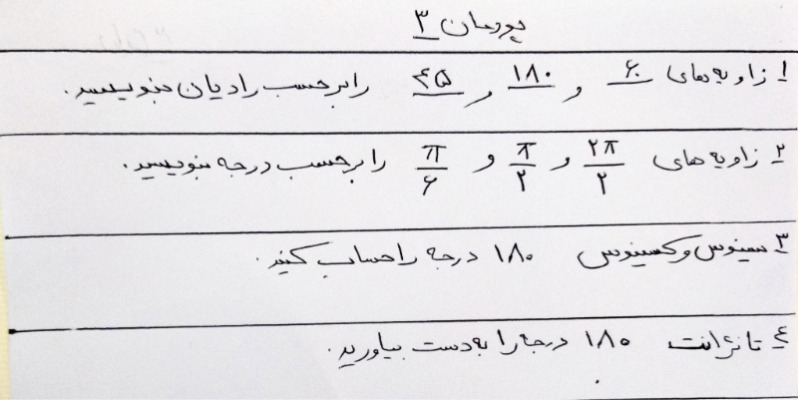 پودمان ۳
۱ زاویه‌های ۶۰ و ۱۸۰ و ۴۵ را برحسب رادیان بنویسید.
۲ زاویه های ۲π/۲ و π/۲ و π/۶ را برحسب درجه بنویسید.
۳ سینوس و کسینوس ۱۸۰ درجه را حساب کنید.
۴ تانژانت ۱۸۰ درجه را به دست بیاورید.